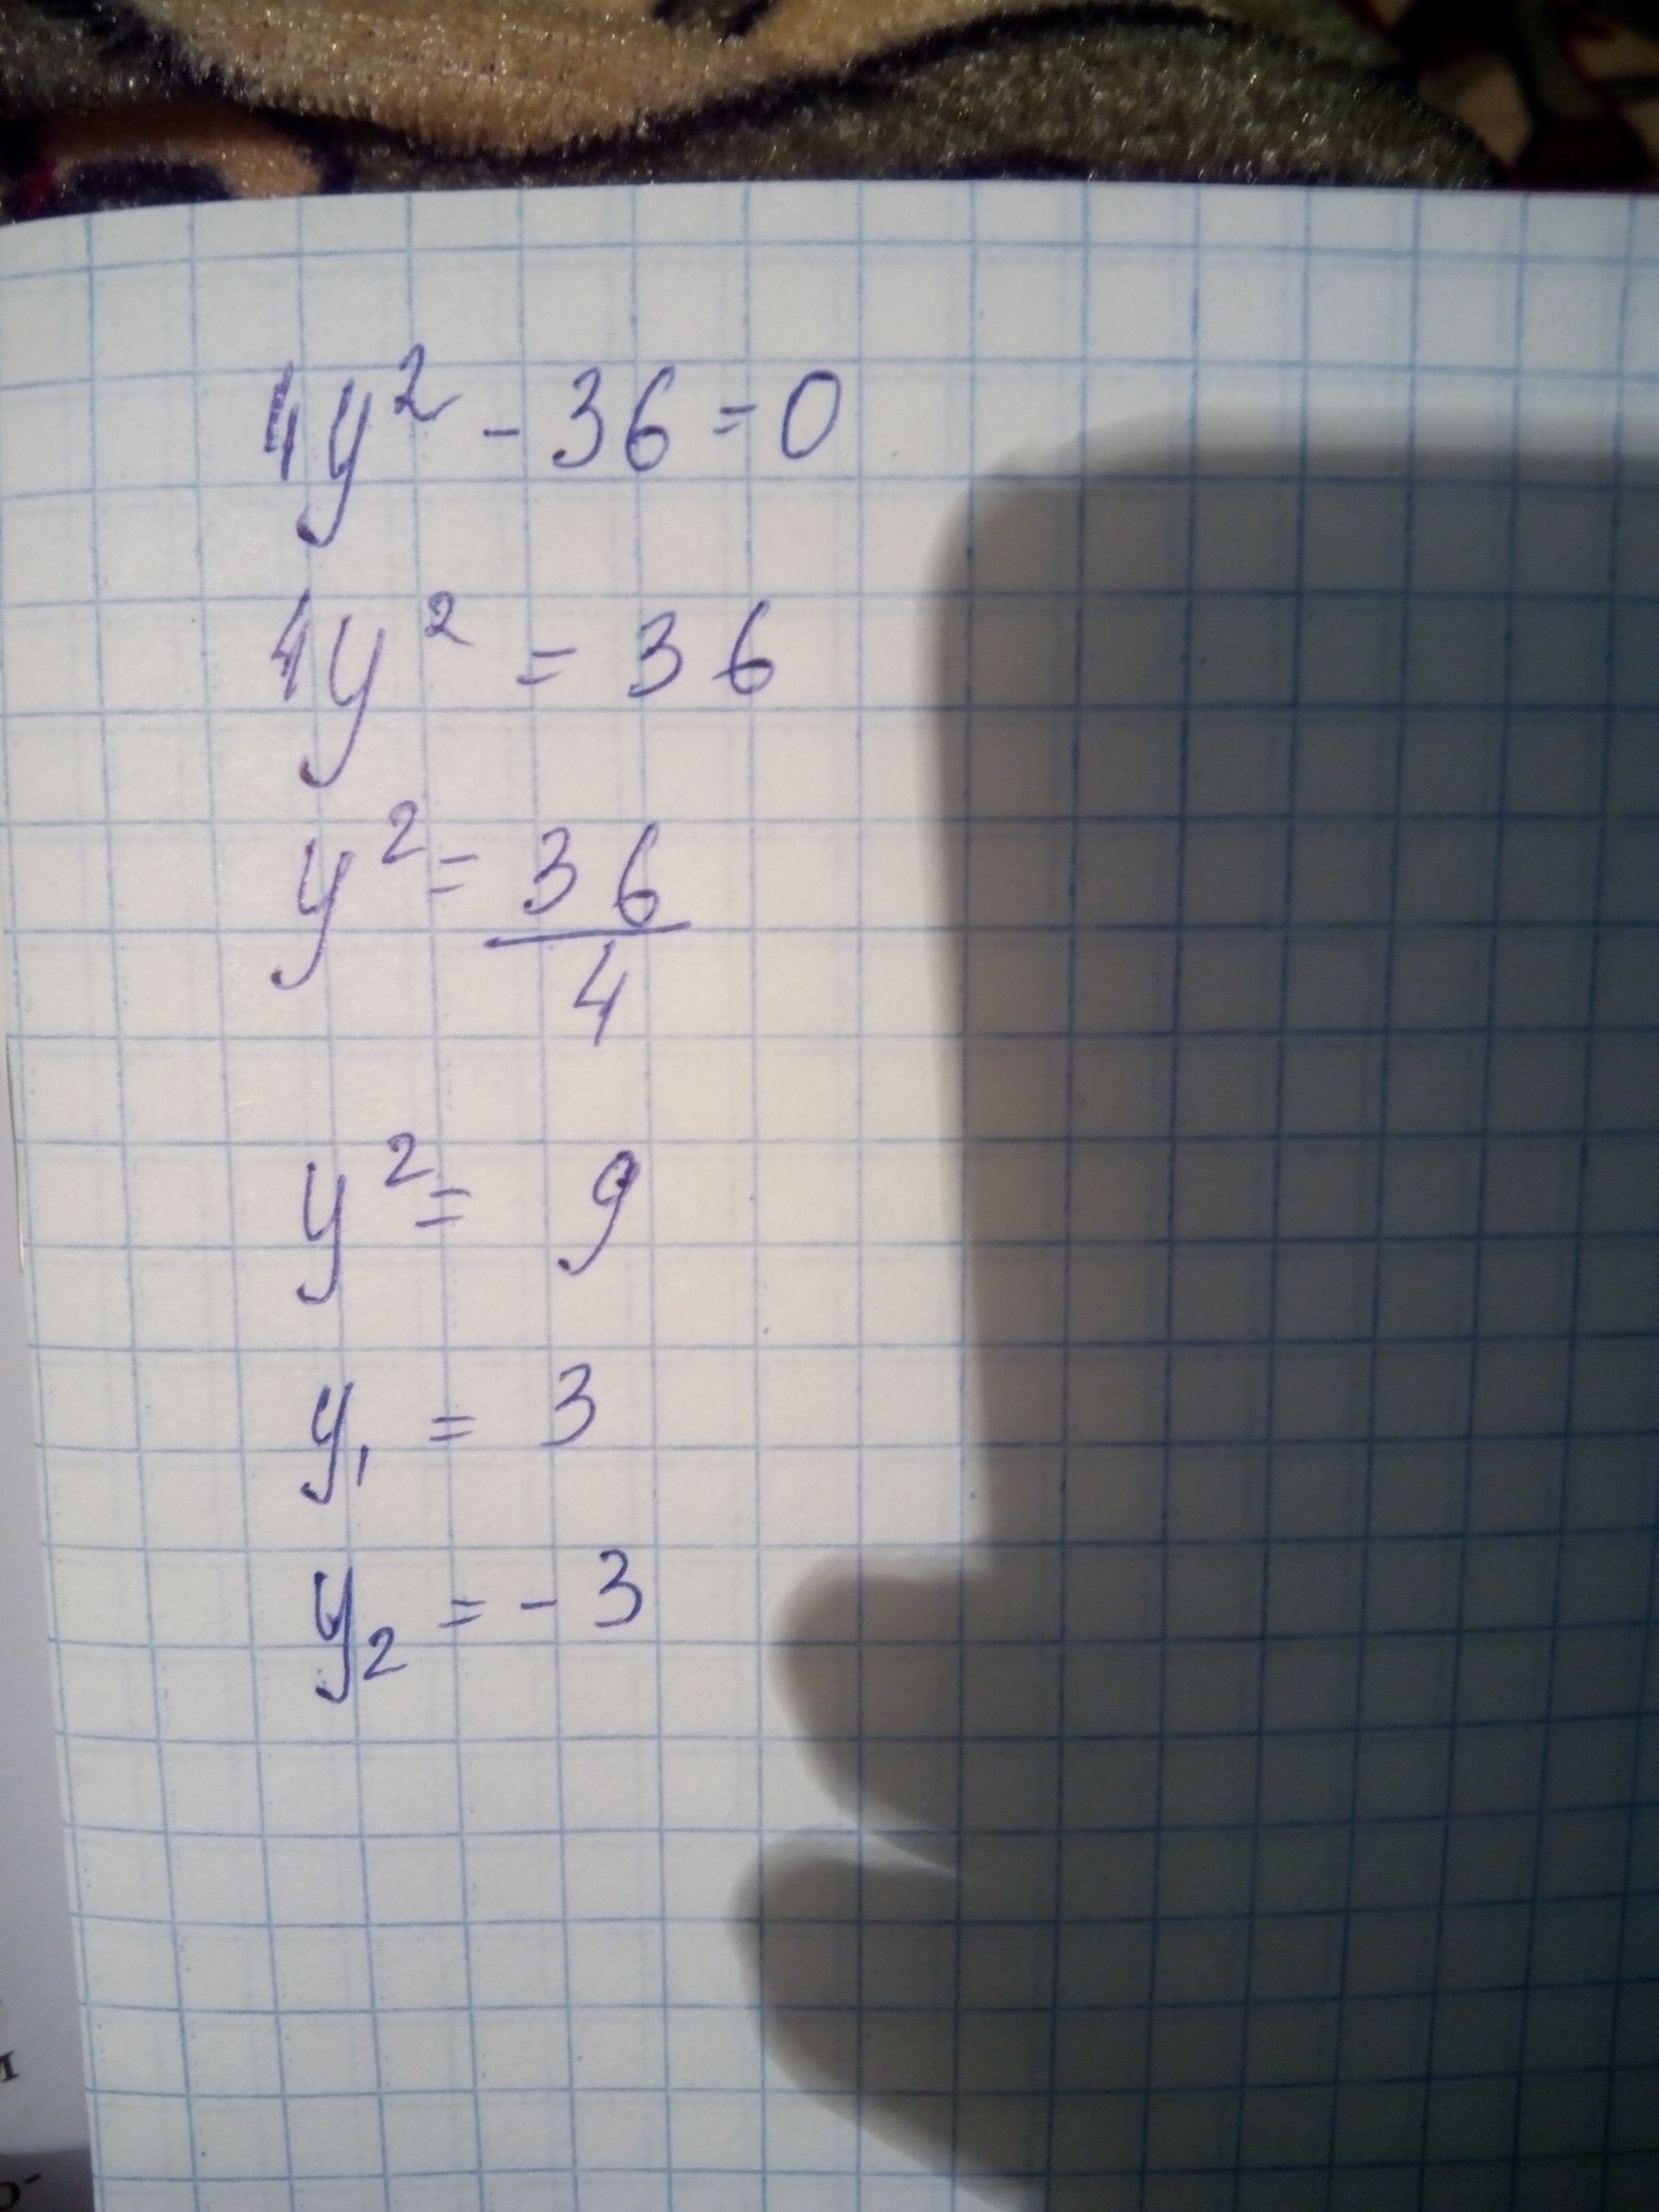 4y² - 36 = 0
4y² = 36
y² = 36/4
y² = 9
y₁ = 3
y₂ = - 3